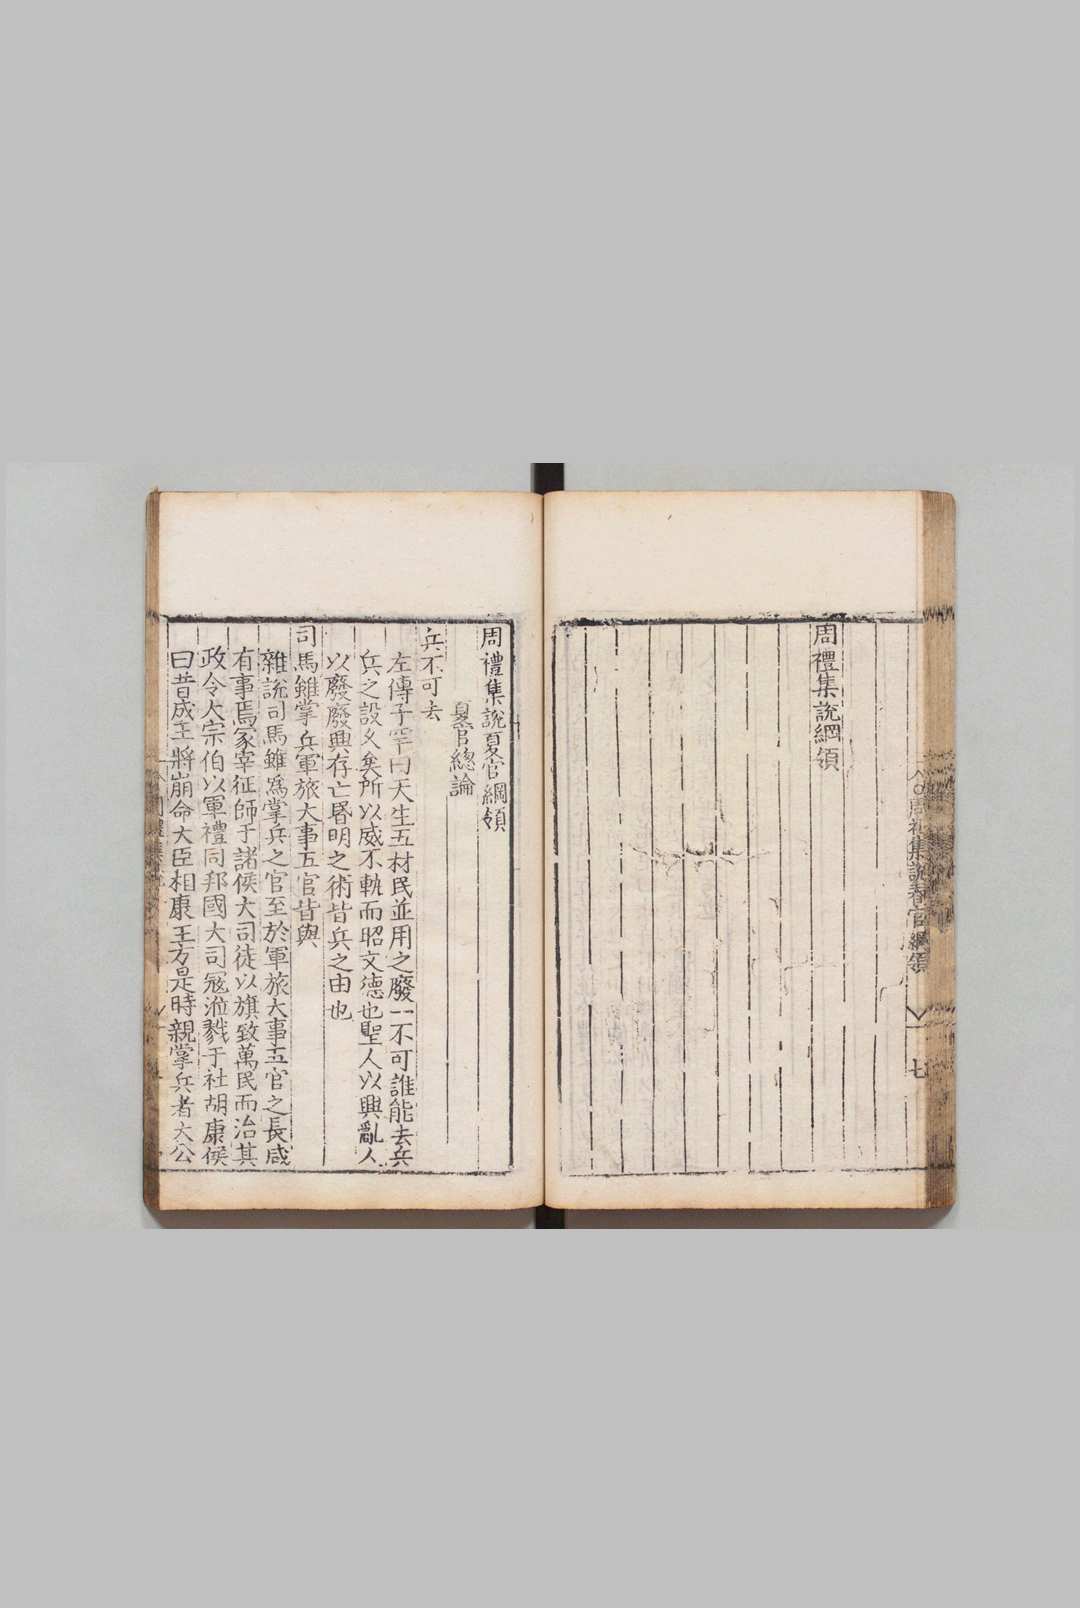 周禮集說綱領
周禮集說春官綱領
七
周禮集說夏官綱領
夏官總論
兵不可去
左傳子罕曰天生五材民並用之廢一不可誰能去兵
兵之設乆矣所以威不軌而昭文德也聖人以興亂人
以廢廢興存亡昬明之術皆兵之由也
司馬雖掌兵軍旅大事五官皆與
雜說司馬雖爲掌兵之官至於軍旅大事五官之長咸
有事焉冢宰征師于諸侯大司徒以旗致萬民而治其
政令大宗伯以軍禮同邦國大司寇涖戮于社胡康侯
曰昔成王將崩命大臣相康王方是時親掌兵者大公